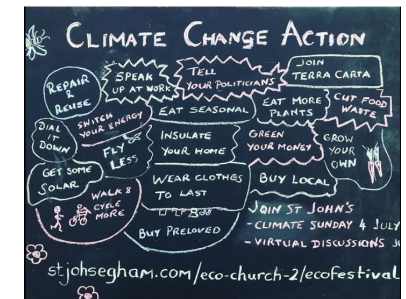 CLIMATE CHANGE ACTION
REPAIR
&
REUSE
SPEAK
UP AT WORK
TELL
YOUR POLITICIANS
JOIN
TERRA CARTA
SWITCH
YOUR ENERGY
EAT SEASONAL
EAT MORE
PLANTS
CUT FOOD
WASTE
DIAL
IT
DOWN
FLY
LESS
INSULATE
YOUR HOME
GREEN
YOUR MONEY
GROW
YOUR
OWN
GET SOME
SOLAR
WEAR CLOTHES
TO LAST
BUY LOCAL
WALK &
CYCLE
MORE
BUY PRELOVED
JOIN ST JOHN'S
- CLIMATE SUNDAY 4 JULY
- VIRTUAL DISCUSSIONS
stjohsegham.com/eco-church-2/ecofestival